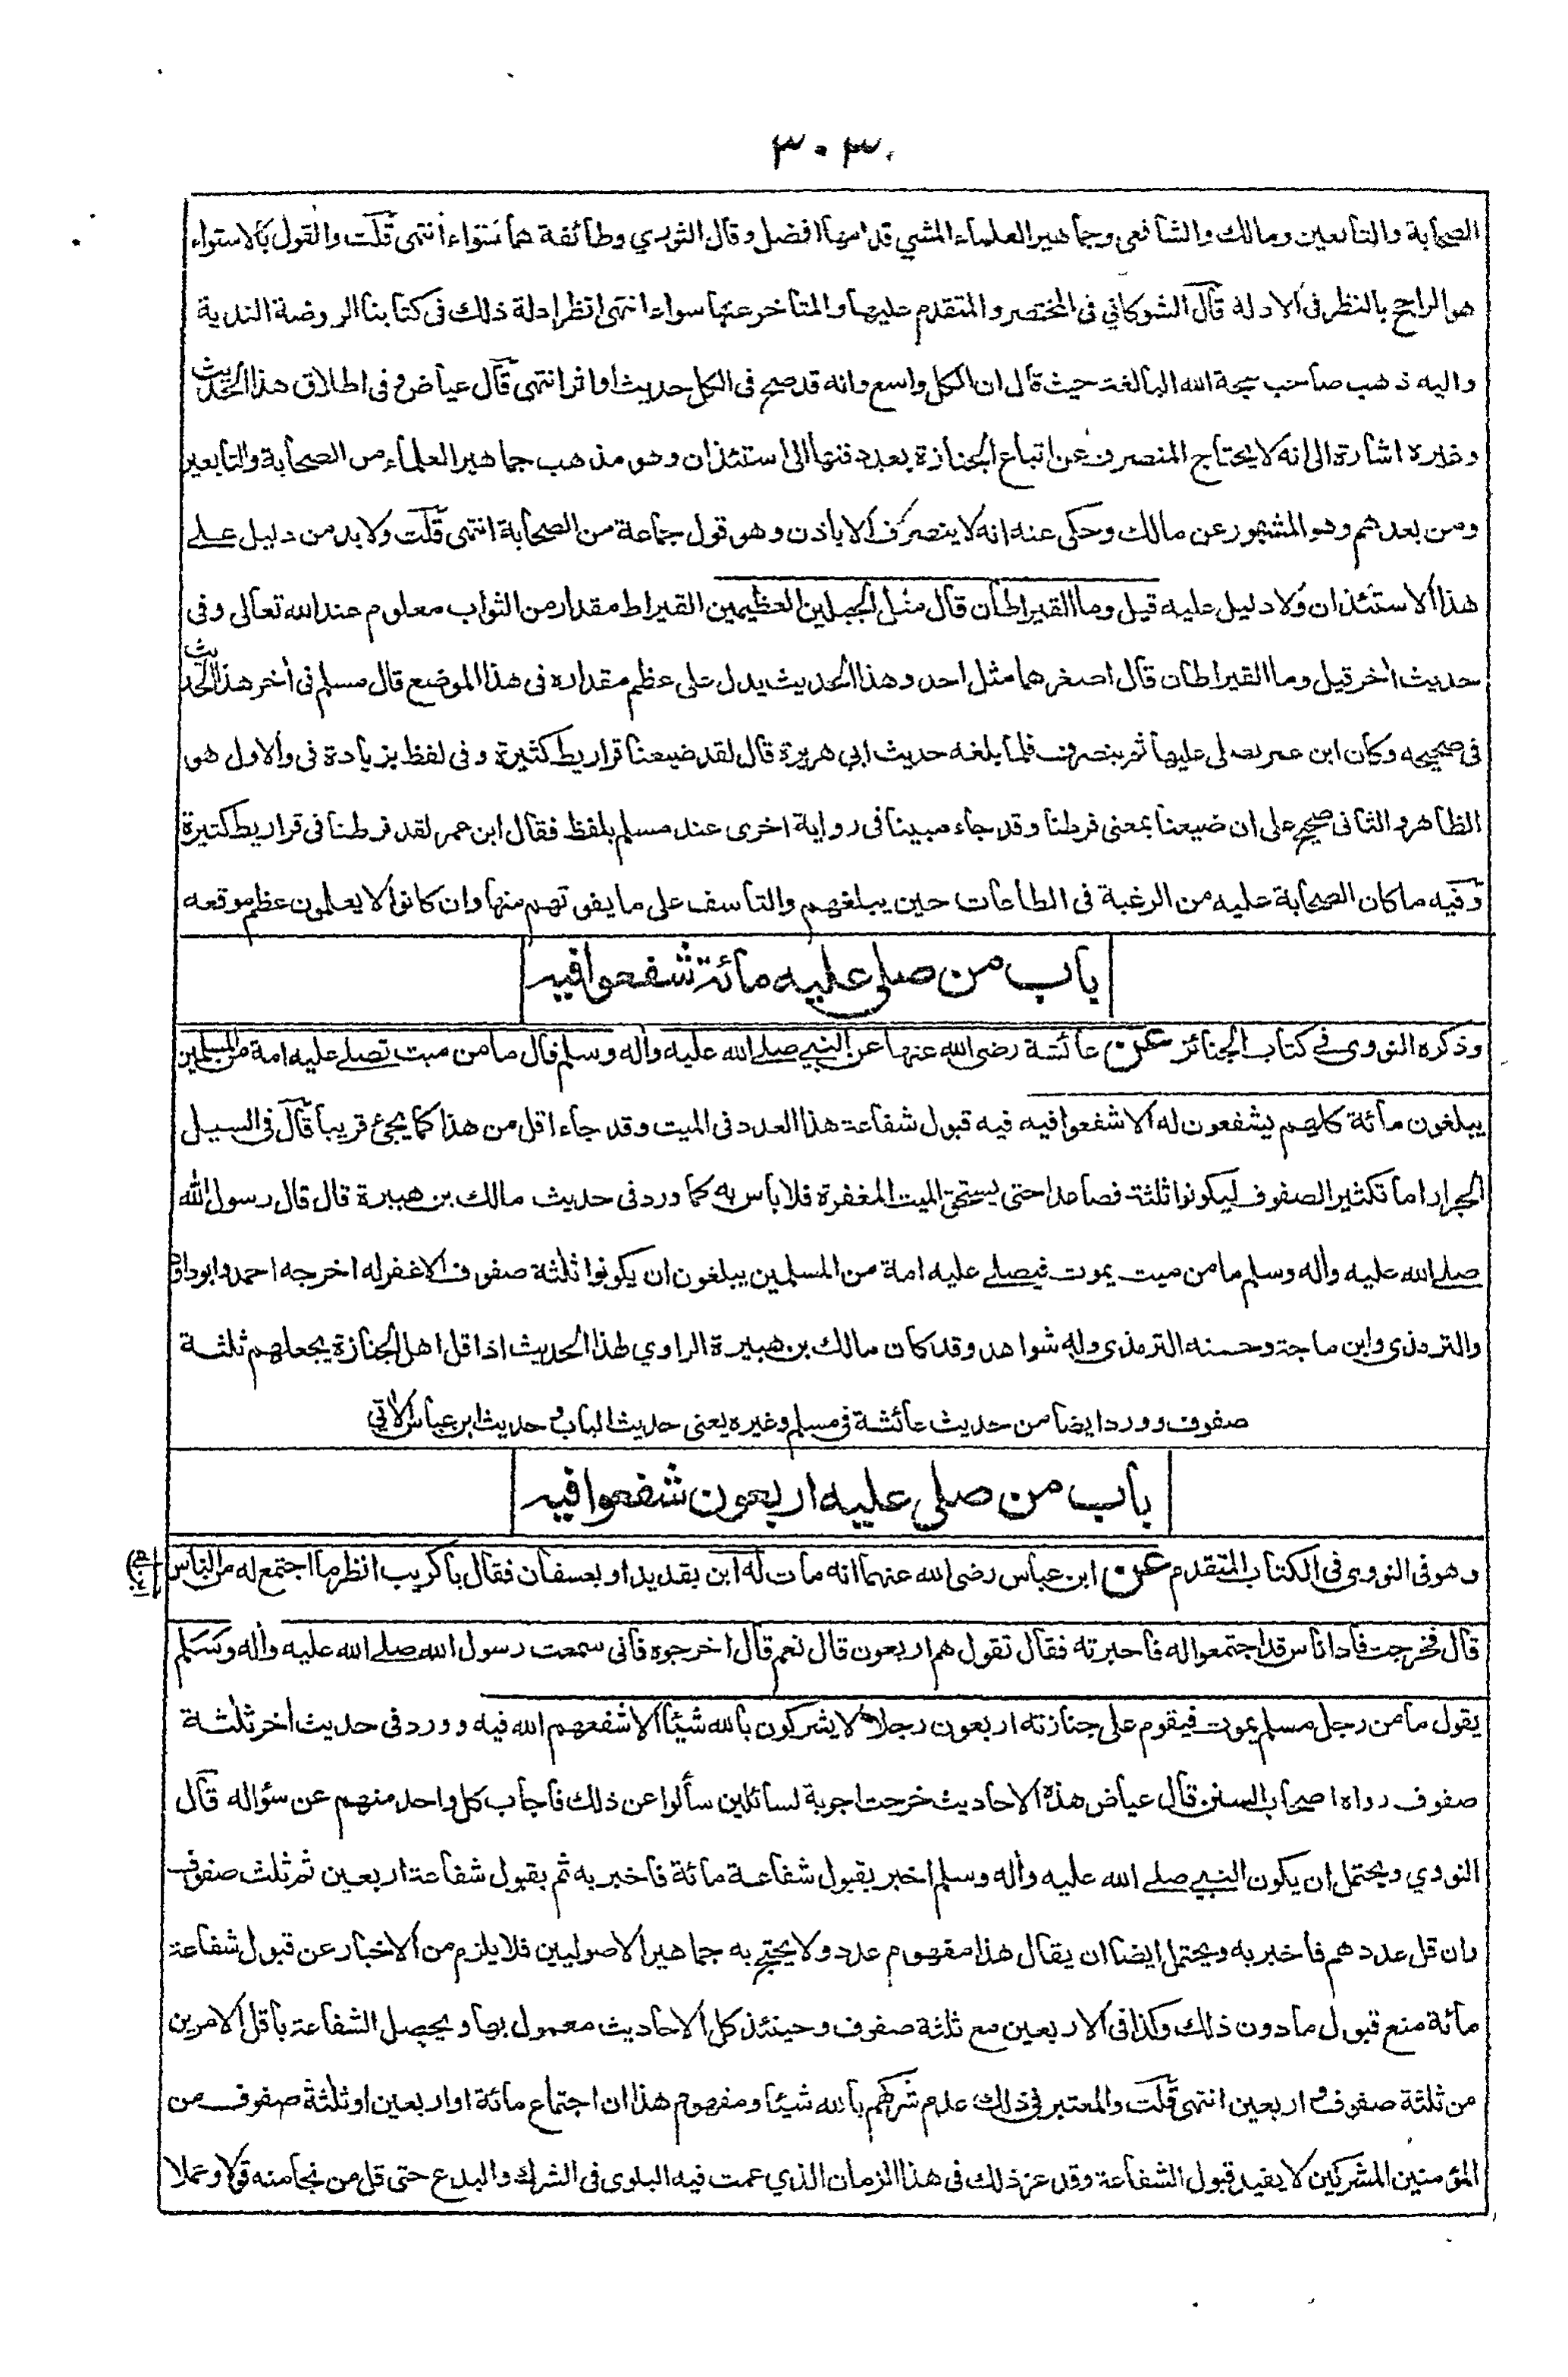 ٣٠٣
الصحابة والتابعين ومالك والشافعي وجماهير العلماء المشي قدامها افضل وقال الثوري وطائفة هما سواء انتهى قلت والقول بالاستواء
هو الراجح بالنظر فى الادلة قال الشوكاني فى المختصر والمتقدم عليها والمتاخر عنها سواء انتهى انظر ادلة ذلك فى كتابنا الروضة الندية
واليه ذهب صاحب حجة الله البالغة حيث قال ان الكل واسع وانه قد صح فى الكل حديث او اثر انتهى قال عياض وفى اطلاق هذا الحديث
وغيره اشارة الى انه لا يحتاج المنصرف عن اتباع الجنازة بعد دفنها الى استئذان وهو مذهب جماهير العلماء من الصحابة والتابعين
ومن بعدهم وهو المشهور عن مالك وحكى عنه انه لا ينصرف الا باذن وهو قول جماعة من الصحابة انتهى قلت ولا بد من دليل على
هذا الاستئذان ولا دليل عليه قيل وما القيراطان قال مثل الجبلين العظيمين القيراط مقدار من الثواب معلوم عند الله تعالى وفى
حديث اخر قيل وما القيراطان قال اصغرهما مثل احد وهذا الحديث يدل على عظم مقداره فى هذا الموضع قال مسلم فى أخر هذا الحديث
فى صحيحه وكان ابن عمر يصلى عليها ثم ينصرف فلما بلغه حديث ابي هريرة قال لقد ضيعنا قراريط كثيرة وفى لفظ بزيادة فى والاول هو
الظاهر والثانى صحيح على ان ضيعنا بمعنى فرطنا وقد جاء مبينا فى رواية اخرى عند مسلم بلفظ فقال ابن عمر لقد فرطنا فى قراريط كثيرة
وفيه ما كان الصحابة عليه من الرغبة فى الطاعات حين يبلغهم والتاسف على ما يفوتهم منها وان كانوا لا يعلمون عظم موقعه
باب من صلى عليه مائة شفعوا فيه
وذكره النووى فى كتاب الجنائز عن عائشة رضى الله عنها عن النبي صلى الله عليه واله وسلم قال ما من ميت تصلى عليه امة من المسلمين
يبلغون مائة كلهم يشفعون له الا شفعوا فيه فيه قبول شفاعة هذا العدد فى الميت وقد جاء اقل من هذا كما يجئ قريبا قال فى السيل
الجرار اما تكثير الصفوف ليكونوا ثلثة فصاعدا حتى يستحق الميت المغفرة فلا باس به كما ورد فى حديث مالك بن هبيرة قال قال رسول الله
صلى الله عليه وأله وسلم ما من ميت يموت فيصلى عليه امة من المسلمين يبلغون ان يكونوا ثلثة صفوف الا غفر له اخرجه احمد وابوداود
والترمذى وابن ماجة وحسنه الترمذى وله شواهد وقد كان مالك بن هبيرة الراوي لهذا الحديث اذا قل اهل الجنازة يجعلهم ثلثة
صفوف وورد ايضا من حديث عائشة فى مسلم وغيره يعنى حديث الباب وحديث ابن عباس الأتي
باب من صلى عليه اربعون شفعوا فيه
وهو فى النووى فى الكتاب المتقدم عن ابن عباس رضى الله عنهما انه مات له ابن بقديد او بعسفان فقال يا كريب انظر ما اجتمع له من الناس
قال فخرجت فاذا ناس قد اجتمعوا له فاخبرته فقال تقول هم اربعون قال نعم قال اخرجوه فانى سمعت رسول الله صلى الله عليه وأله وسلم
يقول ما من رجل مسلم يموت فيقوم على جنازته اربعون رجلا لا يشركون بالله شيئا الا شفعهم الله فيه وورد فى حديث اخر ثلثة
صفوف رواه اصحاب السنن قال عياض هذه الاحاديث خرجت اجوبة لسائلين سألوا عن ذلك فاجاب كل واحد منهم عن سؤاله قال
النووي ويحتمل ان يكون النبي صلى الله عليه وأله وسلم اخبر بقبول شفاعة مائة فاخبر به ثم بقبول شفاعة اربعين ثم ثلث صفوف
وان قل عددهم فاخبر به ويحتمل ايضا ان يقال هذا مفهوم عدد ولا يحتج به جماهير الاصوليين فلا يلزم من الاخبار عن قبول شفاعة
مائة منع قبول ما دون ذلك وكذا فى الاربعين مع ثلثة صفوف وحينئذ كل الاحاديث معمول بها ويحصل الشفاعة باقل الامرين
من ثلثة صفوف و اربعين انتهى قلت والمعتبر فى ذلك عدم شركهم بالله شيئا ومفهوم هذا ان اجتماع مائة او اربعين او ثلثة صفوف من
المؤمنين المشركين لا يفيد قبول الشفاعة وقد عز ذلك فى هذا الزمان الذي عمت فيه البلوى فى الشرك والبدع حتى قل من نجا منه قولا وعملا